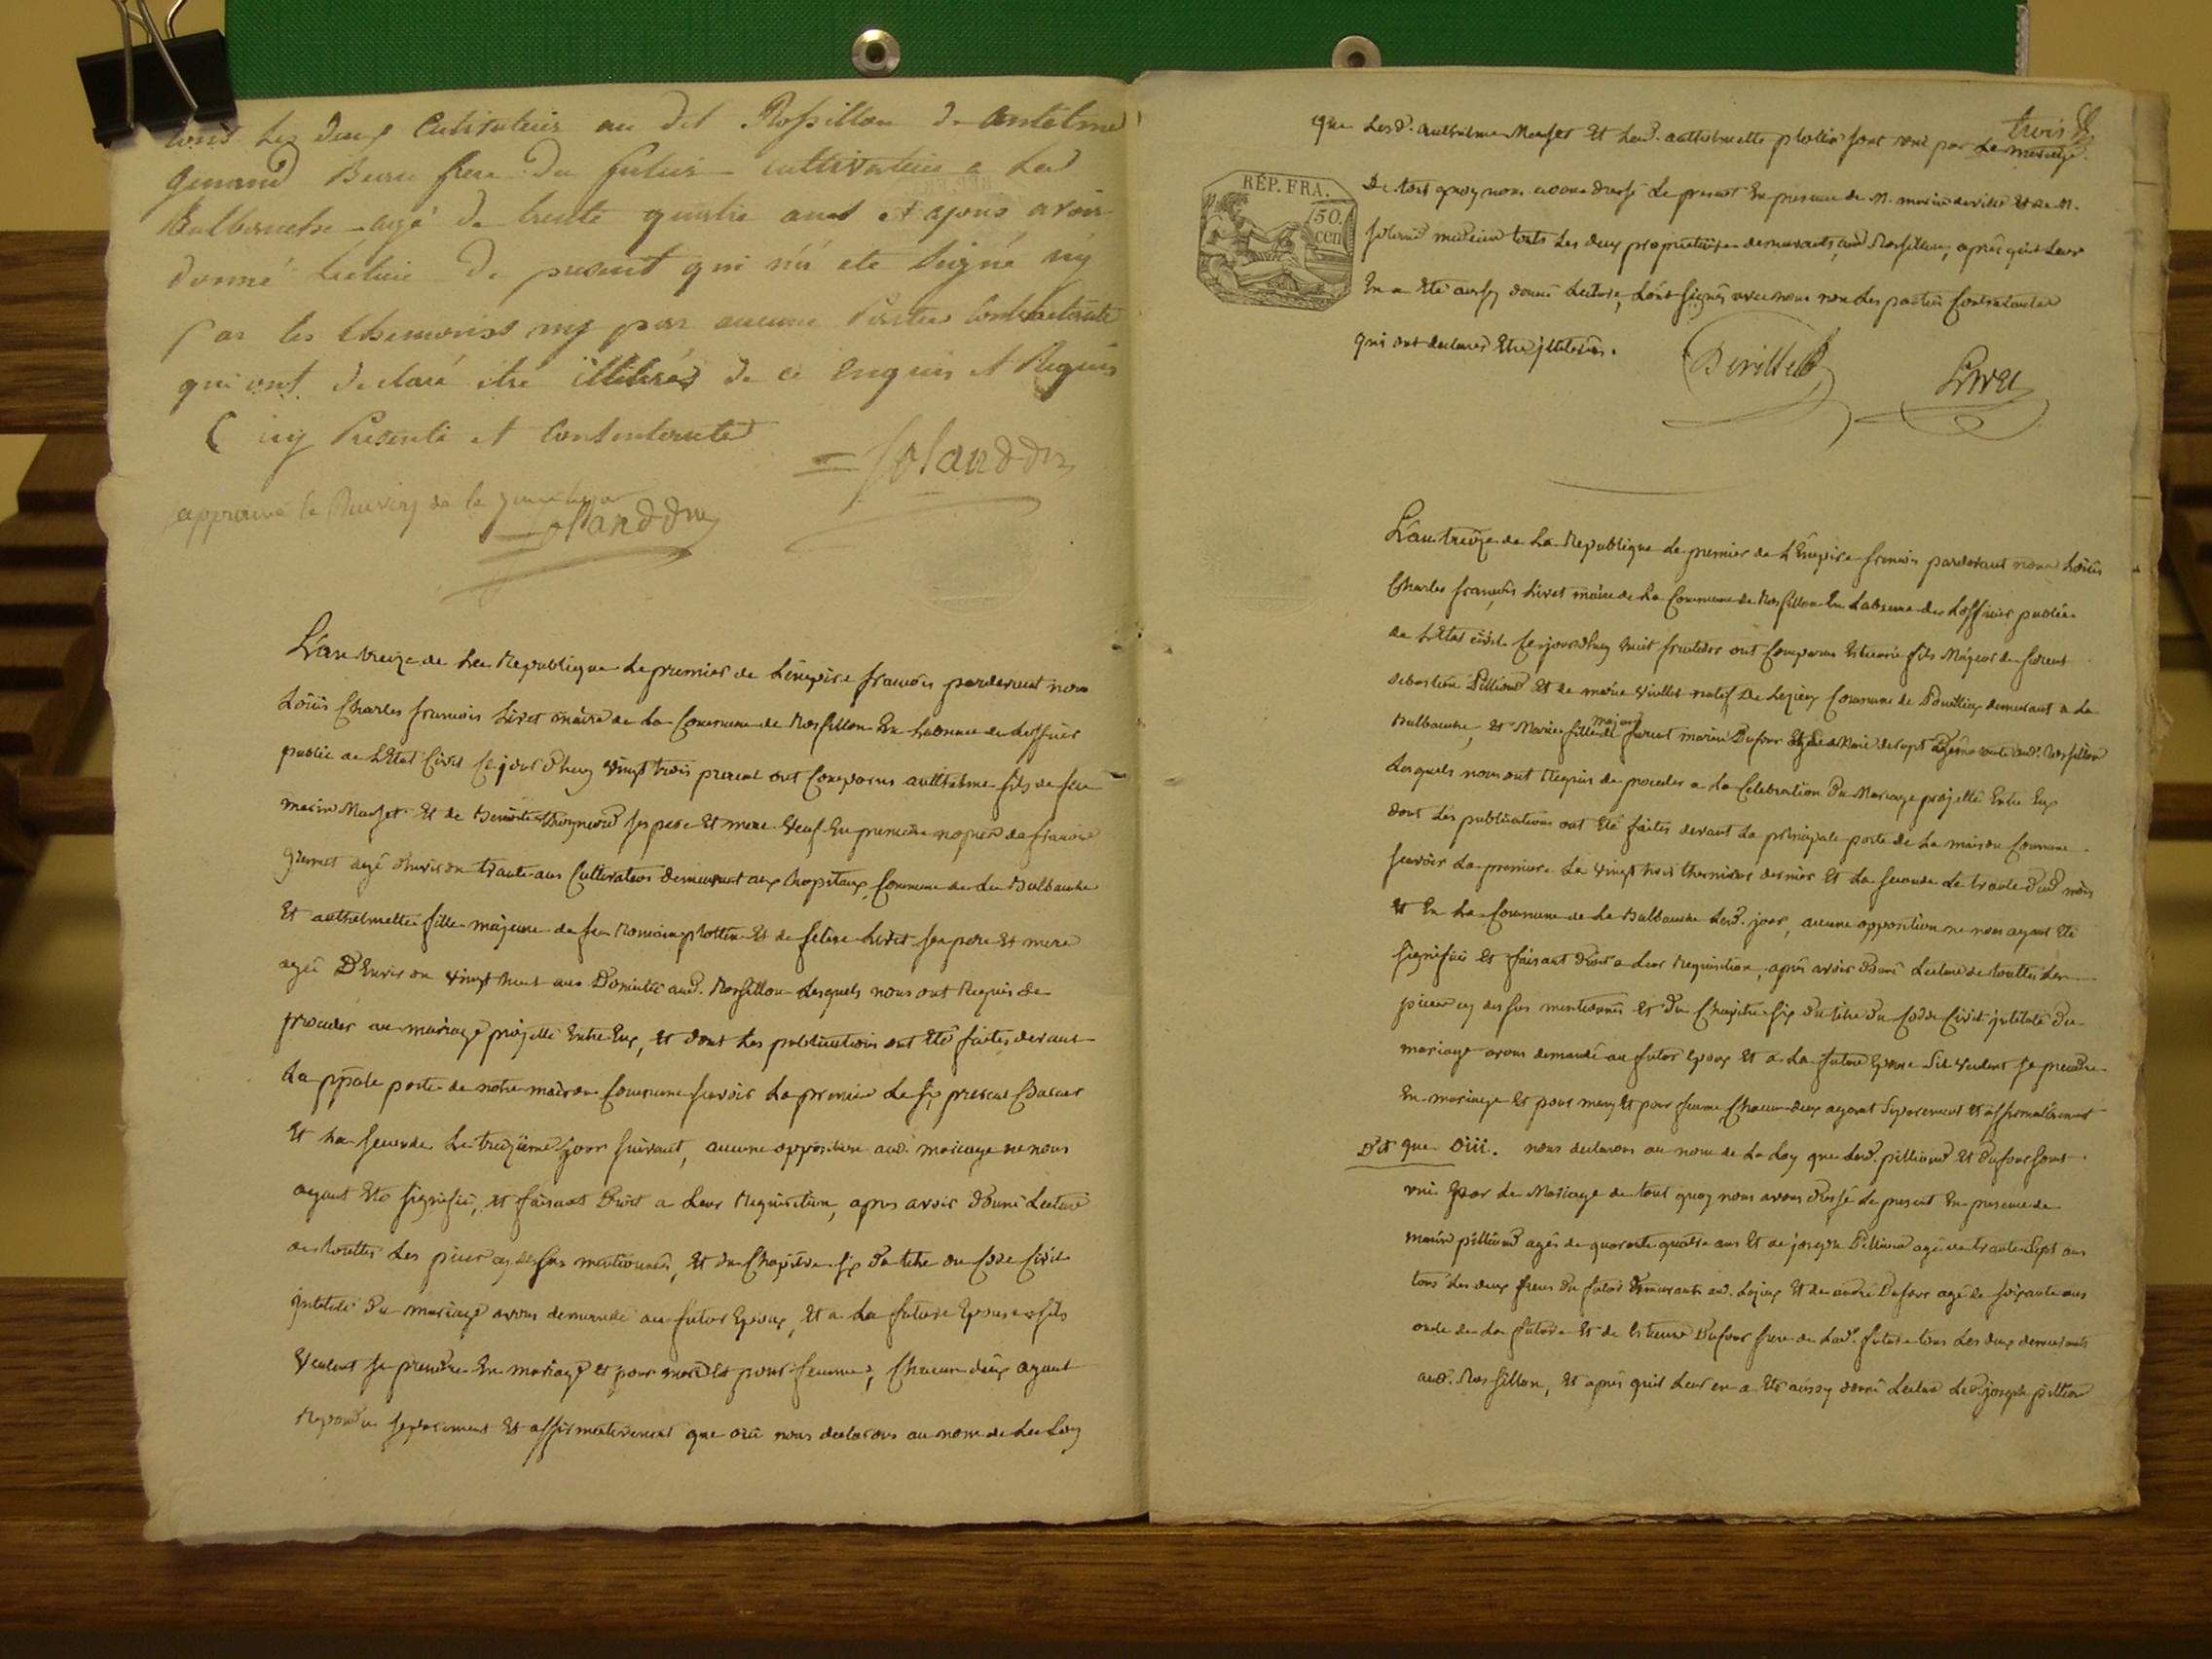 tous les deux Cultivateur au dit Rossillon d antelme
gerand Beau frere du futur cultivateur a La
Balbanche agé de trente quatre ans et apres avoir
donné Lecture du present qui n'a ete Signé ny
par les themoins ny par aucune Partie Contractante
qui ont declaré etre illiterés de ce enquis et Requis
icy Presents et Consentante
Jolanddm
approuvé le
Jolanddm
L'an treize de La Republique Le premier de L'empire francois pardevant nous
Loüis Charles francois Livet maire de La Commune de Rossillon En Labsence de Lofficier
public de L'Etat Civil Cejourdhuy vingt trois prereal ont Comparus anthelme fils de feu
marin Masset Et de Benoite ses pere Et mere veuf En premiere noces de francoise
agé denviron trante ans Cultivateur demeurant aux hopitaux Commune de La Balbanche
Et anthelmette fille majeure de feu Romain plottin Et de feline Livet ses pere Et mere
agée D'Environ vingt huit ans Domicilié aud. Rossillon Lesquels nous ont Requis de
proceder au mariage projetté Entre Eux, et dont Les publications ont Eté faites devant
La ppale porte de notre maison Commune scavoir La premiere Le six prereal Courant
Et La seconde Le treizieme jour suivant, aucune opposition aud. mariage ne nous
ayant Eté signifiée, et faisant Droit a Leur Requisition, apres avoir donné Lecture
de touttes Les pieces cy dessus mentionnées, Et du Chapitre six du titre du Code Civil
jntitulé du mariage avons demandé au futur Epoux, Et a La future Epouse sils
veulent se prendre En mariage et pour mari Et pour femme, Chacun deux ayant
Repondu separement Et affirmativement que oüi nous declarons au nom de La Loy
trois
que Led. anthelme Masset Et Lad. anthelmette plottin sont unis par Le mariage.
RÉP. FRA.
50
cen
De tout quoy nous avons dressé Le present En presence de M. marin deville Et de M.
Joland medecin touts Les deux proprietaires demeurants aud Rossillon, apres quil Leur
En a Eté aussy donné Lecture, Lont signés avec nous non Les parties Contractantes
qui ont declarés Etre jlliterés.
Deville
Livet
L'an treize de La Republique Le premier de L'Empire francois pardevant nous Loüis
Charles françois Livet maire de La Commune de Rossillon En Labsence de Lofficier public
de L'Etat civil Cejourdhuy huit fructidor ont Comparus Estienne fils Majeur de
Sebastien Pillioud Et de marie viollet natif De Lezieu Commune de demeurant a La
Balbanche, Et Marie fille majeure de marin Dufour
Lesquels nous ont Requis de proceder a La Celebration du Mariage projetté Entre Eux
dont Les publications ont Eté faites devant La principale porte de La maison Commune
scavoir La premiere Le vingt trois thermidor dernier Et La seconde Le trante dud mois
Et En La Commune de La Balbanche Led. jour, aucune opposition ne nous ayant Eté
signifiée Et faisant droit a Leur Requisition, apres avoir donné Lecture de touttes Les
pieces cy dessus mentionnées Et du Chapitre six du titre du Code Civil jntitulé du
mariage avons demandé au futur Epoux Et a La future Epouse Sils veulent se prendre
En mariage Et pour mary Et pour femme Chacun deux ayant Separement Et affirmativement
Dit que Oüi. nous declarons au nom de La Loy que Led. pillioud Et Dufour sont
unis par Le Mariage de tout quoy nous avons dressé Le present En presence de
marin pillioud agés de quarante quatre ans Et de joseph Pillioud agé de trante sept ans
tous Les deux freres du futur demeurants aud. Lezieu Et de andré Dufour agé de soixante ans
oncle de La future Et de Estienne Dufour frere de Lad. future tous Les deux demeurants
aud. Rossillon, Et apres quil Leur en a Eté aussy donné Lecture Led. joseph pillioud